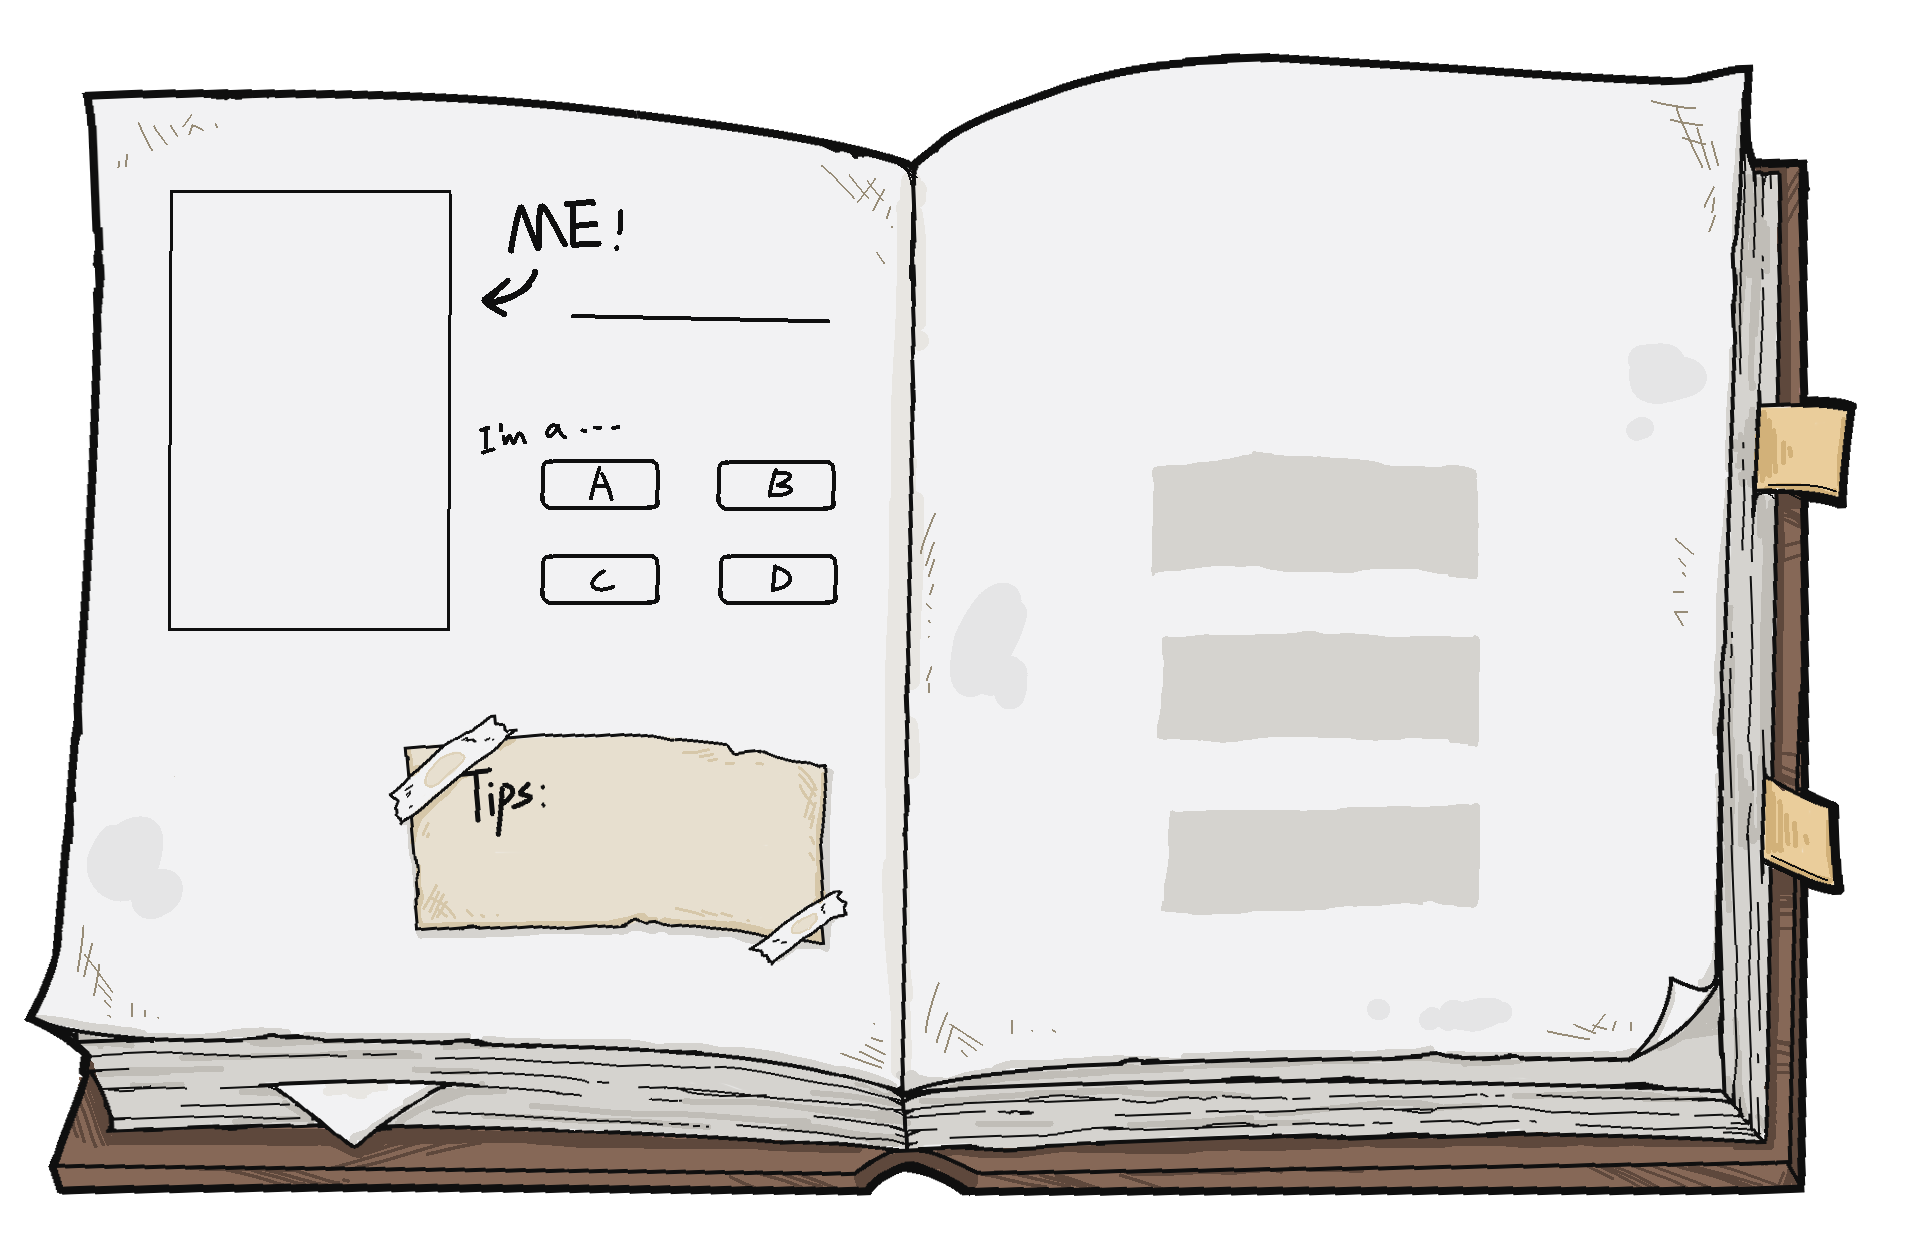 ME!
I'm a ---
A B
C D
Tips: